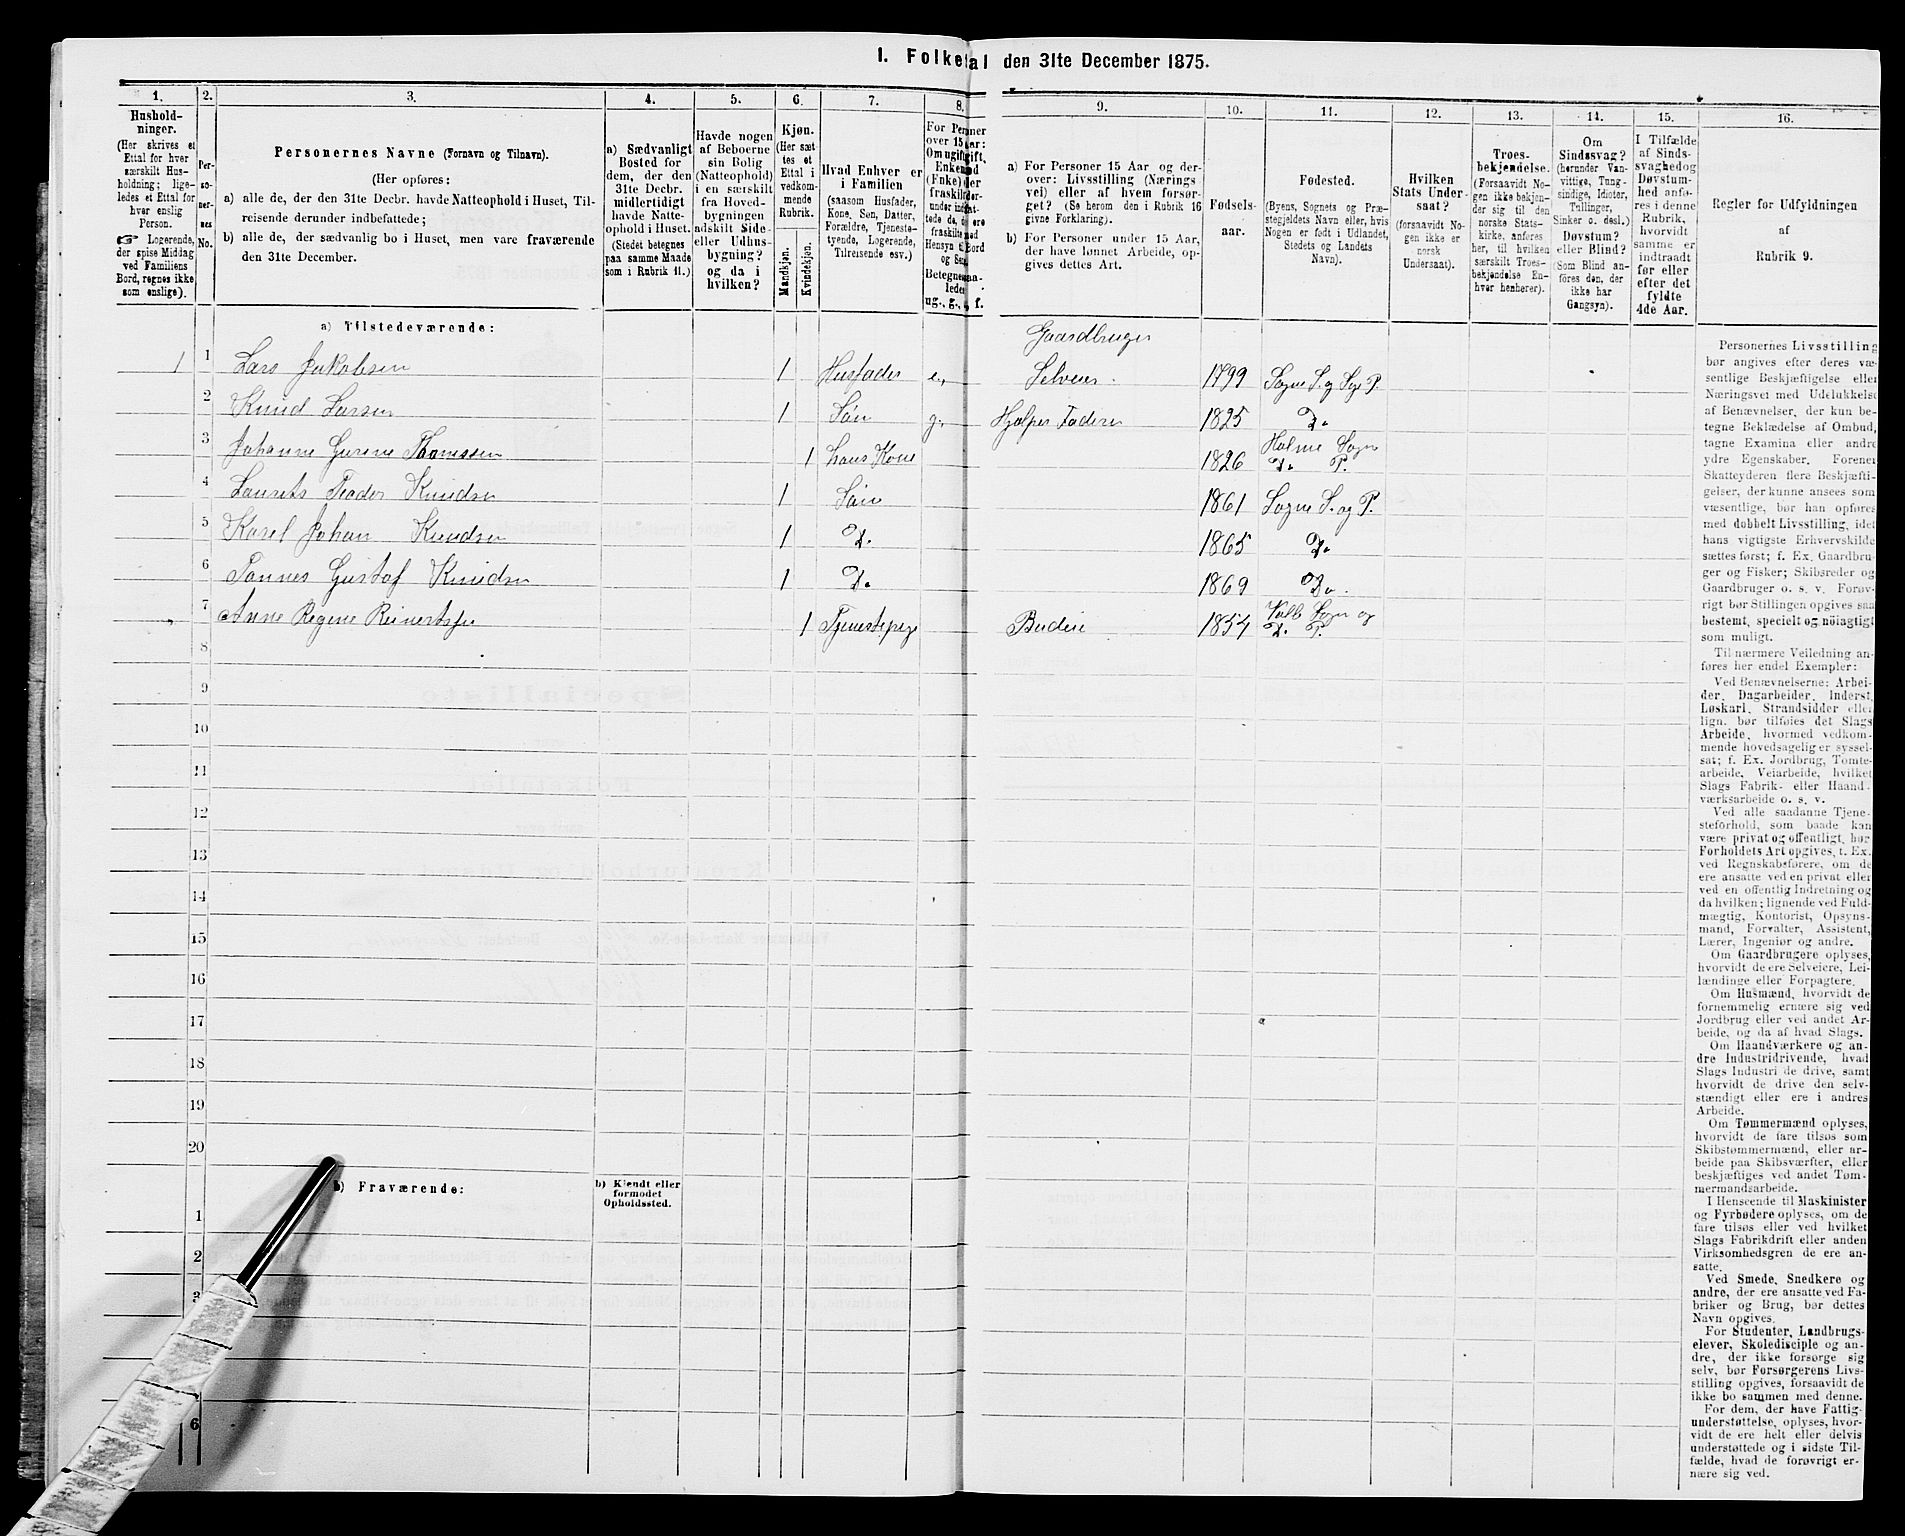 I. Folketal den 31te December 1875.
1.
2.
3.
4.
5.
6.
7.
8.
9.
10.
11.
12.
13.
14.
15.
16.
Hushold-
ninger.
(Her skrives et
Ettal for hver
særskilt Hus-
holdning; lige-
ledes et Ettal for
hver enslig
Person.
☞ Logerende,
der spise Middag
ved Familiens
Bord, regnes ikke
som enslige).
Per-
so-
ner-
nes
No.
Personernes Navne (Fornavn og Tilnavn).
(Her opføres:
a) alle de, der den 31te Decbr. havde Natteophold i Huset, Til-
reisende derunder indbefattede;
b) alle de, der sædvanlig bo i Huset, men vare fraværende
den 31te December.
a) Sædvanligt
Bosted for
dem, der den
31te Decbr.
midlertidigt
havde Natte-
ophold i Huset.
(Stedet betegnes
paa samme Maade
som i Rubrik 11.)
Havde nogen
af Beboerne
sin Bolig
(Natteophold)
i en særskilt
fra Hoved-
bygningen
adskilt Side-
eller Udhus-
bygning?
og da i
hvilken?
Kjøn.
(Her sæt-
tes et
Ettal i
vedkom-
mende
Rubrik.
Mandkjøn.
Kvindekjøn.
Hvad Enhver er
i Familien
(saasom Husfader,
Kone, Søn, Datter,
Forældre, Tjeneste-
tyende, Logerende,
Tilreisende osv.)
For Personer
over 15 Aar:
Om ugift, gift,
Enkemand
(Enke) eller
fraskilt,
Hensyn til Bord
og Seng.
Betegnes saa-
ledes:
ug., g., e., f.
a) For Personer 15 Aar og der-
over: Livsstilling (Nærings-
vei) eller af hvem forsør-
get? (Se herom den i Rubrik 16
givne Forklaring).
b) For Personer under 15 Aar,
der have lønnet Arbeide, op-
gives dettes Art.
Fødsels-
aar.
Fødested.
(Byens, Sognets og Præ-
stegjeldets Navn eller, hvis
Nogen er født i Udlandet,
Stedets og Landets
Navn).
Hvilken
Stats Under-
saat?
(forsaavidt No-
gen ikke er
norsk
Undersaat).
Troes-
bekjendelse.
(Forsaavidt No-
gen ikke bekjen-
der sig til den
norske Stats-
kirke, anføres
her, til hvilken
særskilt Troes-
bekjendelse En-
hver henhører).
Om
Sindssvag?
(herunder Van-
vittige, Tung-
sindige, Idioter,
Tullinger,
Sinker o. desl.)
Døvstum?
eller Blind?
(Som Blind an-
føres den, der
ikke har
Gangsyn).
I Tilfælde
af Sinds-
svaghed og
Døvstum-
hed anfø-
res i denne
Rubrik,
hvorvidt
samme er
indtraadt
før eller
efter det
fyldte
4de Aar.
Regler for Udfyldningen
af
Rubrik 9.
a) Tilstedeværende:
Gaardbruger
1 1 Lars Jakobsen 1 Husfader e. Selveier. 1799 Sogne S. og Sge P.
2 Knud Larsen 1 Søn g. Hjælper Faderen 1825 Do
3 Johanne Gurine Thomssen 1 hans Kone 1826 Halme Sogn
Do P.
4 Laurets Teador Knudsen 1 Søn 1861 Sogne S. og P.
5 Karel Johan Knudsen 1 D. 1865 Do
6 Tønnes Gustaf Knudsen 1 Do 1869 Do.
7 Anne Regene Reinertsdr 1 Tjenestepige Budeie 1854 Valle Sogn og
D. P.
8
9
10
11
12
13
14
15
16
17
18
19
20
b) Fraværende:
b) Kjendt eller
formodet
Opholdssted.
1
2
3
6
Personernes Livsstilling
bør angives efter deres væ-
sentlige Beskjæftigelse eller
Næringsvei med Udelukkelse
af Benævnelser, der kun be-
tegne Beklædelse af Ombud,
tagne Examina eller andre
ydre Egenskaber. Forener
Skatteyderen flere Beskjæfti-
gelser, der kunne ansees som
væsentlige, bør han opføres
med dobbelt Livsstilling, idet
hans vigtigste Erhvervskilde
sættes først; f. Ex. Gaardbru-
ger og Fisker; Skibsreder og
Gaardbruger o. s. v. Forøv-
rigt bør Stillingen opgives saa
bestemt, specielt og nöiagtigt
som muligt.
Til nærmere Veiledning an-
føres her endel Exempler:
Ved Benævnelserne: Arbei-
der, Dagarbeider, Inderst,
Løskarl, Strandsidder eller
lign. bør tilføies det Slags
Arbeide, hvormed vedkom-
mende hovedsagelig er syssel-
sat; f. Ex. Jordbrug, Tomte-
arbeide, Veiarbeide, hvilket
Slags Fabrik- eller Haand-
værksarbeide o. s. v.
Ved alle saadanne Tjene-
steforhold, som baade kan
være privat og offentligt, bør
Forholdets Art opgives, t. Ex.
ved Regnskabsførere, om de
ere ansatte ved en privat eller
ved en offentlig Indretning og
da hvilken; lignende ved Fuld-
mægtig, Kontorist, Opsyns-
mand, Forvalter, Assistent,
Lærer, Ingeniør og andre.
Om Gaardbrugere oplyses,
hvorvidt de ere Selveiere, Lei-
lændinge eller Forpagtere.
Om Husmænd, hvorvidt de
fornemmelig ernære sig ved
Jordbrug eller ved andet Ar-
beide, og da af hvad Slags.
Om Haandværkere og an-
dre Industridrivende, hvad
Slags Industri de drive, samt
hvorvidt de drive den selv-
stændigt eller ere i andres
Arbeide.
Om Tømmermænd oplyses,
hvorvidt de fare tilsøs som
Skibstømmermænd, eller ar-
beide paa Skibsværfter, eller
beskjæftiges ved andet Tøm-
mermandsarbeide.
I Henseende til Maskinister
og Fyrbødere oplyses, om de
fare tilsøs eller ved hvilket
Slags Fabrikdrift eller anden
Virksomhedsgren de ere an-
satte.
Ved Smede, Snedkere og
andre, der ere ansatte ved Fa-
briker og Brug, bør dettes
Navn opgives.
For Studenter, Landbrugs-
elever, Skoledisciple og an-
dre, der ikke forsørge sig
selv, bør Forsørgerens Livs-
stilling opgives, forsaavidt de
ikke bo sammen med denne.
For dem, der have Fattig-
understøttelse, oplyses, hvor-
vidt de ere helt eller delvis
understøttede og i sidste Til-
fælde, hvad de forøvrigt er-
nære sig ved.